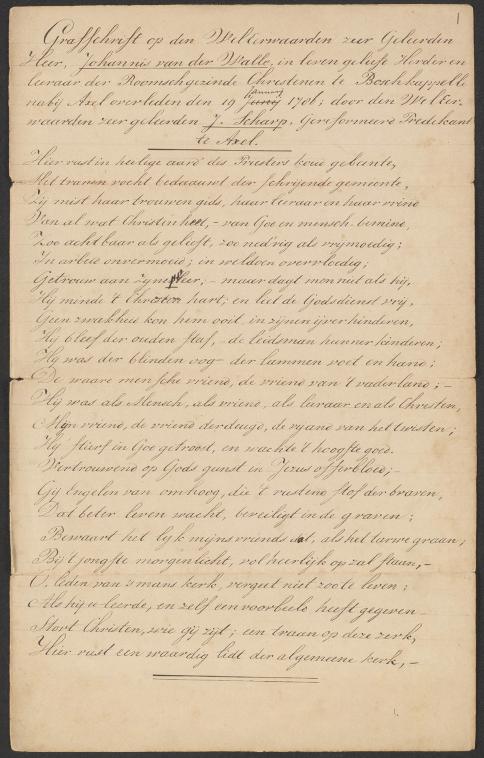 1
Grafschrift op den WelEerwaarden zeer Geleerden
Heer, Johannis van der Walle, in leven geliefe Herder en
leeraar der Roomschgezinde Christenen te Boschkappelle
nabij Axel overleden den 19 Januarij 1791; door den WelEer-
waarden zeer geleerden J. Scharp, Gereformeerd Predikant
te Axel.
Hier rust in heilige aard des Priesters koue gebeente,
Met tranen vocht bedaauwt der schrijende gemeente,
Zij mist haar trouwen gids, haar leeraar en haar vriend
Van al wat Christin heet, - van God en mensch bemind,
Zoo achtbaar als gelieft, zoo nedrig als vrijmoedig;
In arbeid onvermoeid; in weldoen overvloedig;
Getrouw aan zyne pleer; - maar dagt men niet als hij,
Hij minde 't Christen hart; en liet de Godsdienst vrij,
Geen zwakheid kon hem ooit, in zijnen ijver hinderen,
Hij bleef der ouden staf, - de leidsman hunner kinderen;
Hy was der blinden oog - der lammen voet en hand;
De waare mensche vriend, de vriend van 't vaderland; -
Hij was als Mensch, als vriend, als leraar en als Christen,
Mijn vriend, de vriend der deugd, de vyand van het twisten;
Hij stierf in God getroost, en wachte 't hoogste goed.
Vertrouwend op Gods gunst in Jezus offerbloed; -
Gij Engelen van omhoog, die 't rustend stof der braven,
Dat beter leven wacht, beveiligt in de graven;
Bewaart het lijk mijns vriends dat, als het turwe graan;
Bij 't jongste morgenlicht, vol heerlijk op zal staan, -
O leden van 's mans kerk, vergeet niet zoo te leven;
Als hij u leerde, en zelf een voorbeeld heeft gegeven -
Stort Christen, wie gij zijt; een traan op deze zerk,
Hier rust een waardig lidt der algemeene kerk, -